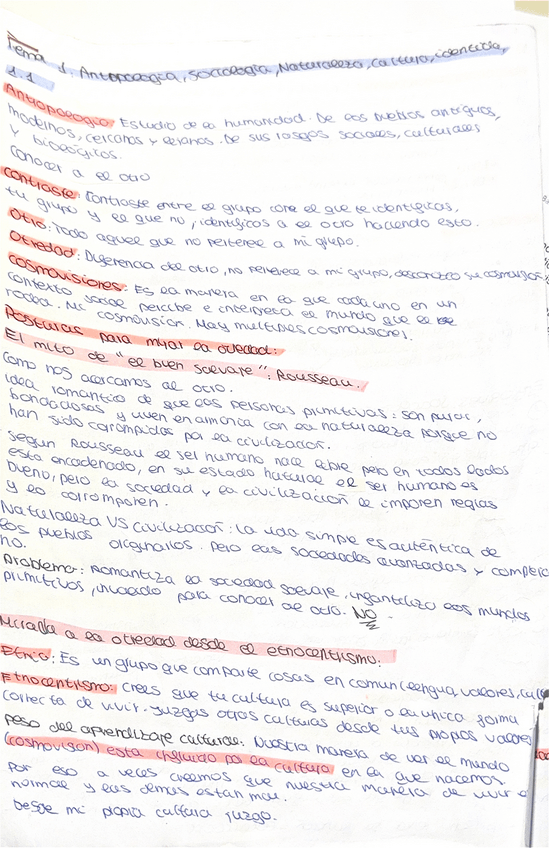 Tema 1. Antropología, sociología, Naturaleza, cultura, identida,
1.1
Antropología: Estudio de la humanidad. De los pueblos antiguos,
modernos, cercanos y lejanos. De sus rasgos sociales, culturales
y biológicos.
Conocer a el otro
Contraste: Contraste entre el grupo con el que te identificas,
tu grupo y el que no, identificas a el otro haciendo esto.
Otro: Todo aquel que no pertenece a mi grupo.
Otredad: Diferencia del otro, no pertenece a mi grupo, desconozco su cosmovision
Cosmovisiones: Es la manera en la que cada uno en un
contexto social percibe e interpreta el mundo que le
rodea. Mi cosmovision. Hay multiples cosmovisiones.
Posturas para mirar la otredad:
El mito de "el buen salvaje": Rousseau.
Como nos acercamos al otro.
Idea romantica de que las personas primitivas: son puras,
bondadosas y viven en armonia con la naturaleza porque no
han sido corrompidas por la civilización.
Segun Rousseau el ser humano nace libre pero en todos lados
esta encadenado, en su estado natural el ser humano es
bueno, pero la sociedad y la civilización le imponen reglas
y lo corrompen.
Naturaleza VS Civilización: la vida simple es autentica de
los pueblos originarios. Pero las sociedades avanzadas y compleja
no.
Problema: Romantiza la sociedad salvaje, infantiliza los mundos
primitivos, invalido para conocer al otro. NO
Mirada a la otredad desde el etnocentrismo:
Etnia: Es un grupo que comparte cosas en comun (lengua, valores, cult
Etnocentrismo: Crees que tu cultura es superior o la unica forma
correcta de vivir. Juzgas otras culturas desde tus propios valores
Peso del aprendizaje cultural: Nuestra manera de ver el mundo
(cosmovison) esta influida por la cultura en la que nacemos.
Por eso a veces creemos que nuestra manera de vivir e
normal y las demas estan mal.
Desde mi propia cultura juzgo.